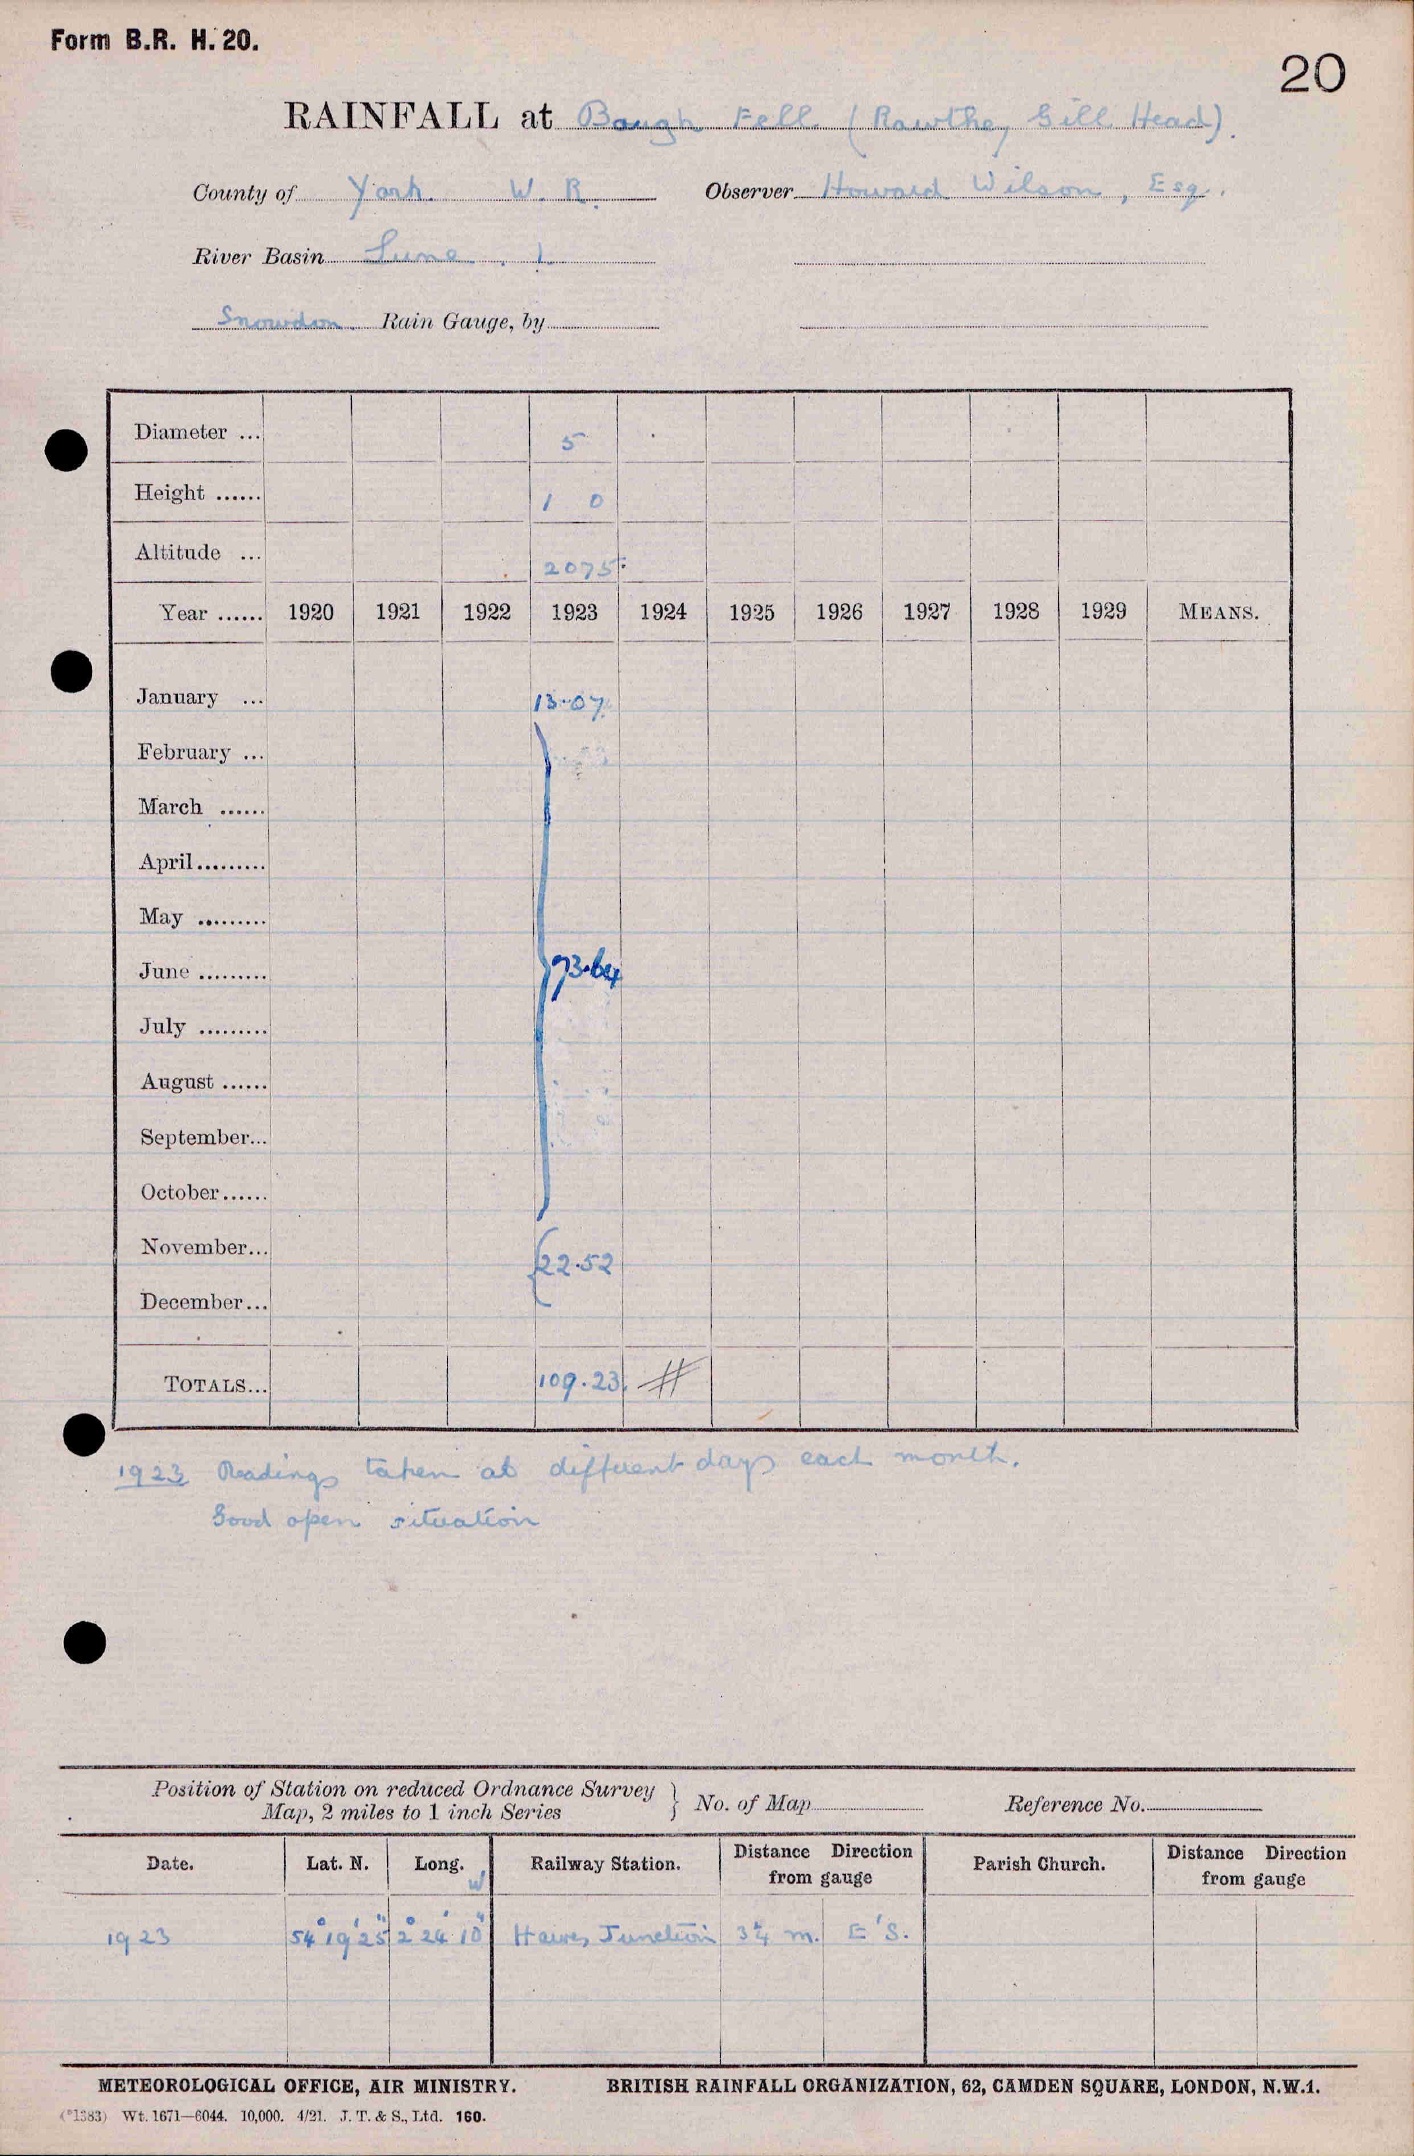 Form B.R. H. 20.
20
RAINFALL at Baugh Fell (Rawthey Gill Head).
County of York. W. R. Observer Howard Wilson, Esq.
River Basin Lune. 1
Snowdon Rain Gauge, by
Diameter ... 5
Height ...... 1 0
Altitude ... 2075
Year ...... 1920 1921 1922 1923 1924 1925 1926 1927 1928 1929 MEANS.
January ... 13.07
February ...
March ......
April.........
May .........
June ......... 73.64
July .........
August ......
September...
October......
November... 22.52
December...
TOTALS... 109.23 #
1923 Readings taken at different days each month.
Good open situation
Position of Station on reduced Ordnance Survey
Map, 2 miles to 1 inch Series } No. of Map Reference No.
Date. Lat. N. Long. W Railway Station. Distance Direction from gauge Parish Church. Distance Direction from gauge
1923 54° 19' 25" 2° 24' 10" Hawes Junction 3¼ m. E'S.
METEOROLOGICAL OFFICE, AIR MINISTRY. BRITISH RAINFALL ORGANIZATION, 62, CAMDEN SQUARE, LONDON, N.W.1.
(*1383) Wt. 1671—6044. 10,000. 4/21. J. T. & S., Ltd. 160.